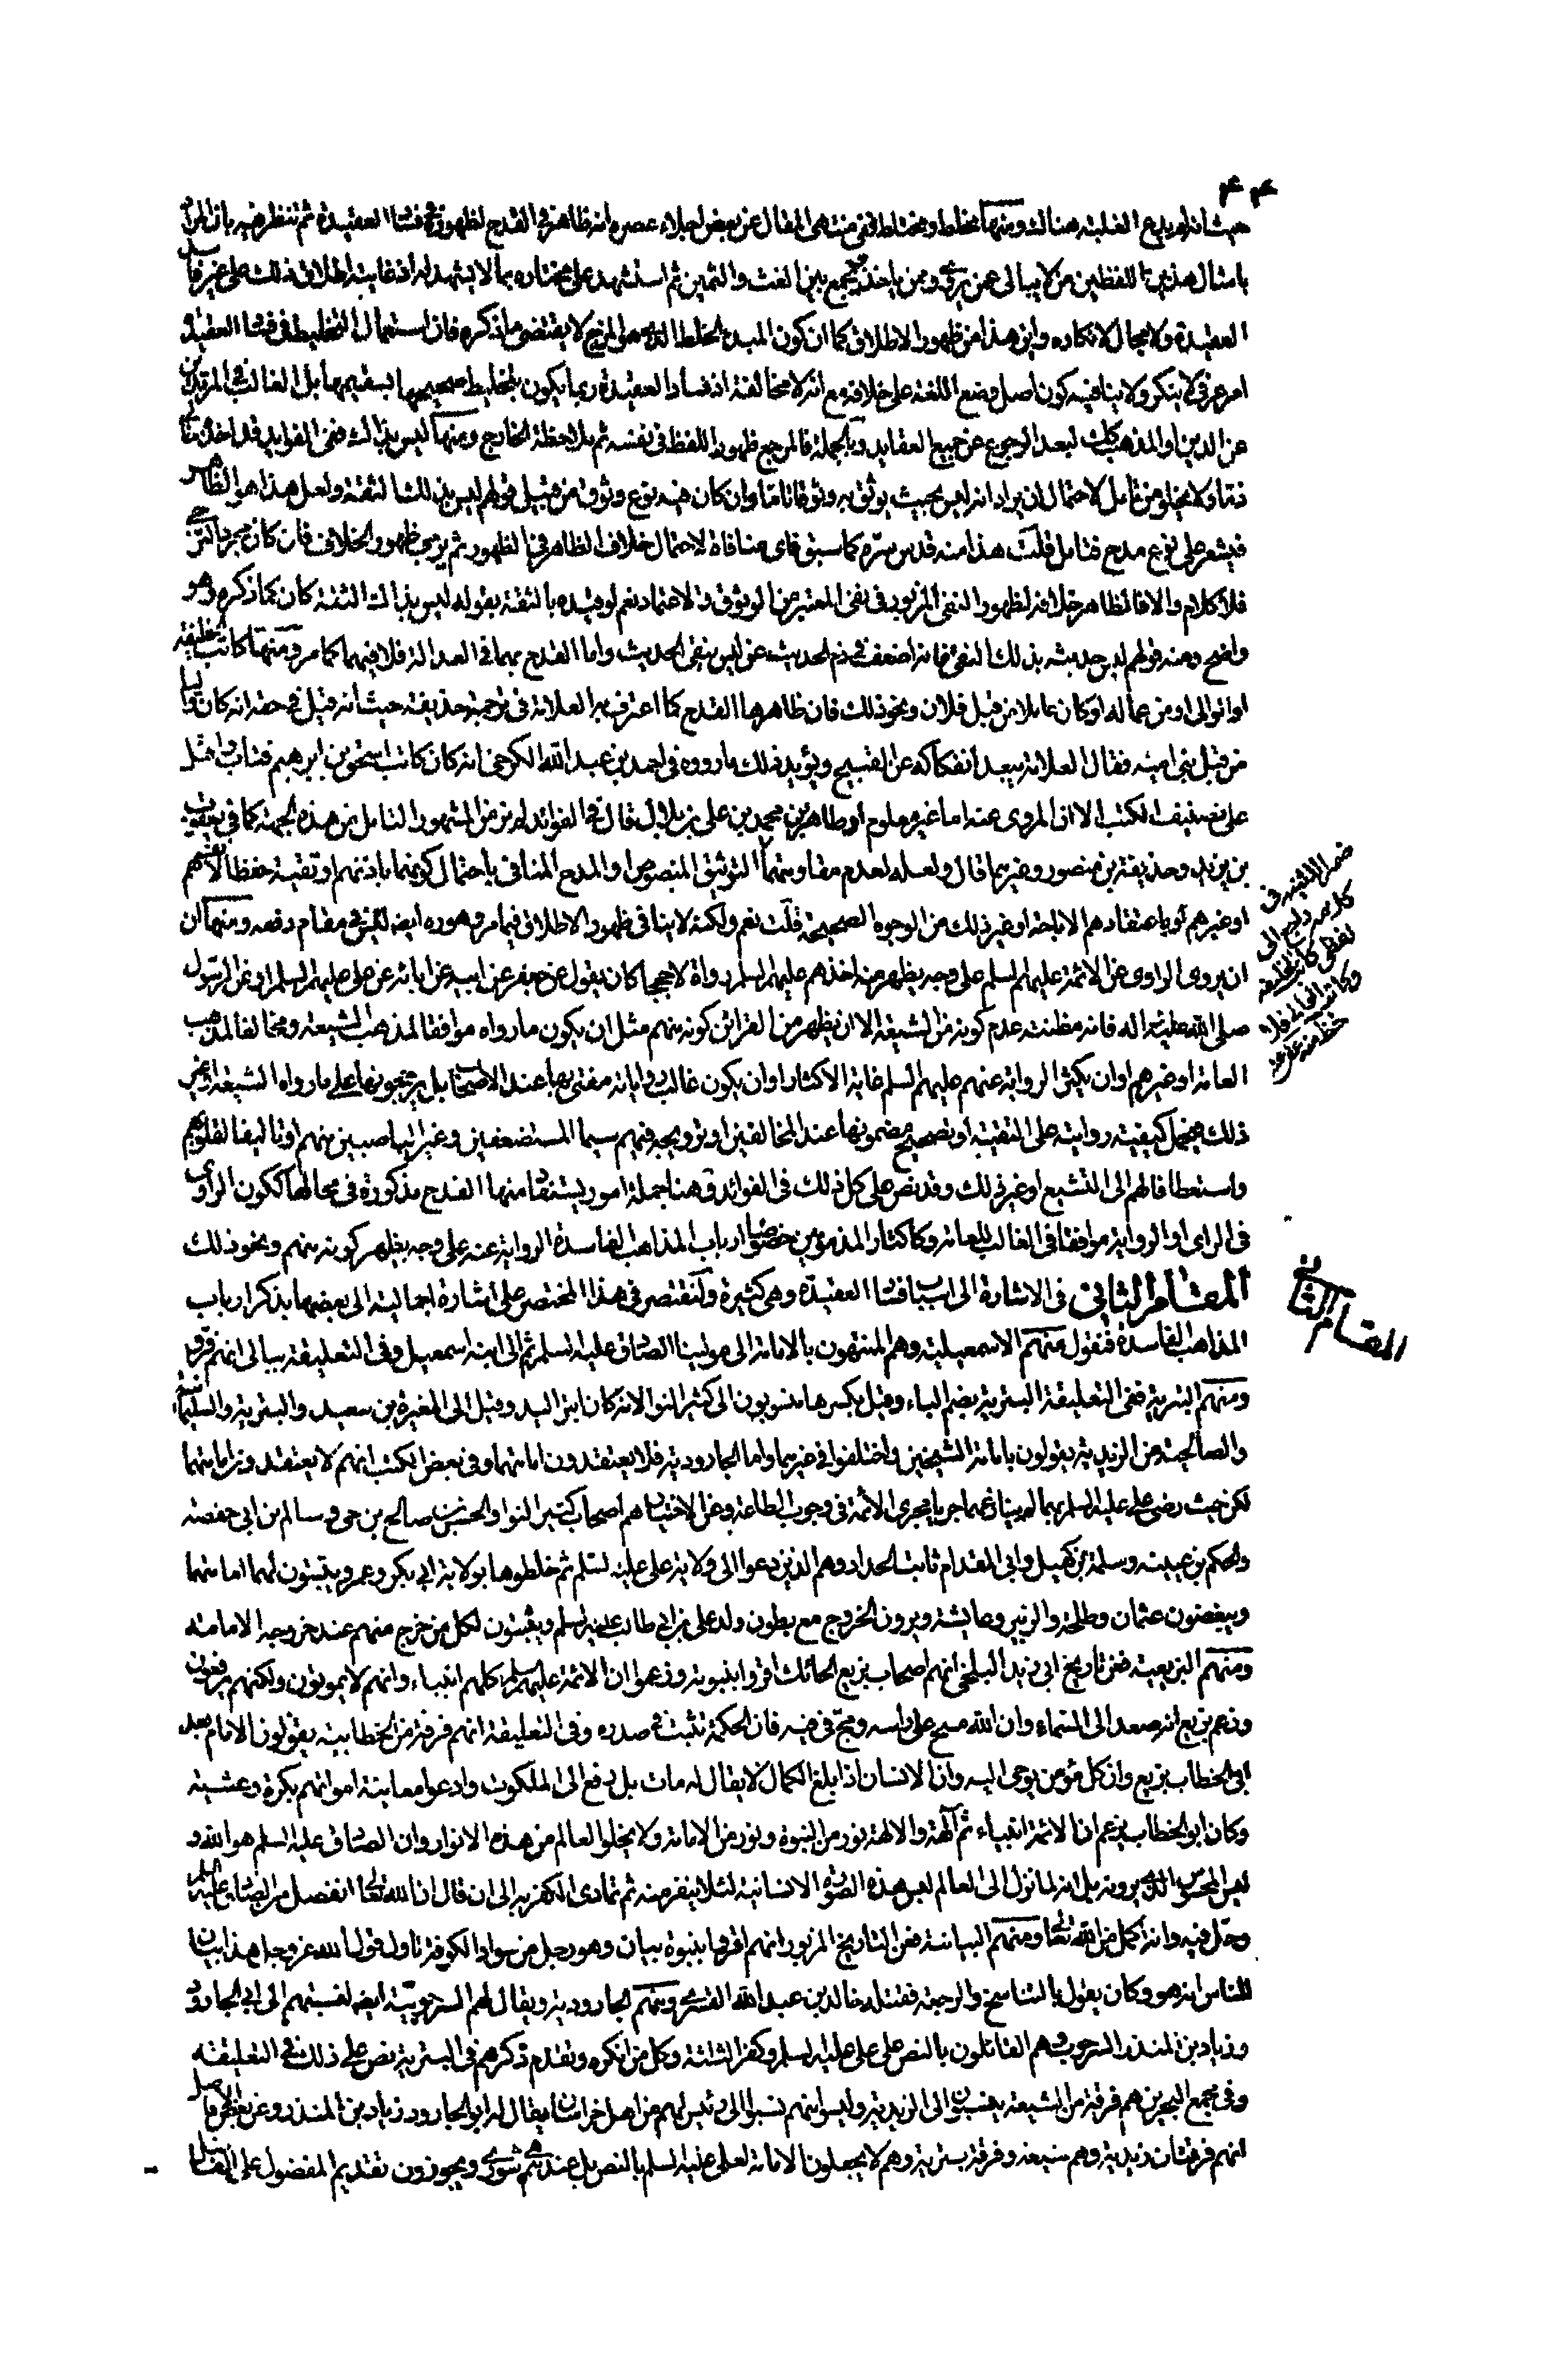 ۴۴
حيث انه لم يدع الغلبة هنالك ومنها مخلط ومختلط ففي منتهى المقال عن بعض اجلاء عصره انه ظاهر في القدح لظهوره في فساد العقيدة ثم تنظر فيه بان المراد
بامثال هذين اللفظين من لا يبالي عمن يروي وممن ياخذ يجمع بين الغث والثمين ثم استشهد على مختاره بما لا يشهد له اذ غايته اطلاق ذلك على غير فاسد
العقيدة ولا مجال لانكاره واين هذا من ظهور الاطلاق كما ان كون المبدء الخلط الذي هو المزج لا يقتضي ما ذكره فان استعمال التخليط في فساد العقيدة
امر عرفي لا ينكر ولا ينافيه كون اصل وضع اللغة على خلافه مع انه لا مخالفة اذ فساد العقيدة ربما يكون بتخليط صحيحها بسقيمها بل الغالب في المرتدين
عن الدين او المذهب كك لبعد الرجوع عن جميع العقايد وبالجملة فالمرجع ظهور اللفظ في نفسه ثم بملاحظة الخارج ومنها ليس بذاك ففي الفوايد قد اخذه خالنا
ذما ولا يخلو من تامل لاحتمال ان يراد انه ليس بحيث يوثق به وثوقا تاما وان كان فيه نوع وثوق من قبيل قولهم ليس بذلك الثقة ولعل هذا هو الظاهر
فيشعر على نوع مدح فتامل قلت هذا منه قدس سره كما سبق فاي منافاة لاحتمال خلاف الظاهر في الظهور ثم يرى ظهور الخلاف فان كان مجرد الترجي
فلا كلام والا فالظاهر خلافه لظهور النفي المزبور في نفي المعتبر من الوثوق والاعتماد نعم لو قيده بالثقة بقوله ليس بذاك الثقة كان كما ذكره وهو
واضح ومنه قولهم ليس حديثه بذلك النقي فانه اضعف في ذم الحديث عن ليس بنقي الحديث واما القدح بهما في العدالة فلا فيهما كما مر ومنها كاتب الخليفة
او الوالي او من عماله او كان عاملا من قبل فلان ونحو ذلك فان ظاهرها القدح كما اعترف به العلامة في ترجمة حذيفة حيث انه قيل في حقه انه كان واليا
من قبل بني امية فقال العلامة يبعد انفكاكه عن القبيح ويؤيد ذلك ما رووه في احمد بن عبد الله الكرخي انه كان كاتب اسحق بن ابرهيم فتاب واقبل
على تصنيف الكتب الا ان المروي عنه اما غير معلوم او طاهر بن محمد بن علي بن بلال قال في الفوائد لم نر من المشهور التامل من هذه الجهة كما في يعقوب
بن يزيد وحذيفة بن منصور وغيرهما قال ولعله لعدم مقاومتهما التوثيق المنصوص او المدح المنافي باحتمال كونهما باذنهم او تقية حفظا لانفسهم
او غيرهم او باعتقادهم الاباحة او غير ذلك من الوجوه الصحيحة قلت نعم ولكنه لا ينافي ظهور الاطلاق فيما مر وهو ره ايضا ليس في مقام دفعه ومنها ان
ان يروي الراوي عن الائمة عليهم السلم على وجه يظهر منه اخذهم عليهم السلم رواة لا حججا كان يقول عن جعفر عن ابيه عن ابائه عن علي عليهم السلم او عن الرسول
صلى الله عليه واله فانه مظنة عدم كونه من الشيعة الا ان يظهر من القرائن كونه منهم مثل ان يكون ما رواه موافقا لمذهب الشيعة ومخالفا لمذهب
العامة او غيرهم او ان يكثر الرواية عنهم عليهم السلم غاية الاكثار او ان يكون غالب رواياته مفتى بها عند الاصحاب بل يرجحونها على ما رواه الشيعة او غير
ذلك فيحمل كيفية روايته على التقية او تصحيح مضمونها عند المخالفين او ترويجه فيهم سيما المستضعفين وغير الناصبين منهم او تاليفا لقلوبهم
واستعطافا لهم الى التشيع او غير ذلك وقد نص على كل ذلك في الفوائد وهنا جملة امور يستفاد منها القدح مذكورة في محالها ككون الراوي
في الراي او الرواية موافقا في الغالب للعامة وكاكثار المذمومين خصوصا ارباب المذاهب الفاسدة الرواية عنه على وجه يظهر كونه منهم ونحو ذلك
المقام الثاني في الاشارة الى اسباب فساد العقيدة وهي كثيرة ولنقتصر في هذا المختصر على اشارة اجمالية الى بعضها بذكر ارباب
المذاهب الفاسدة فنقول منهم الاسمعيلية وهم المنتهون بالامامة الى مولينا الصادق عليه السلم ثم الى ابنه اسمعيل وفي التعليقة ببالي انهم فرق
ومنهم البترية ففي التعليقة البترية بضم الباء وقيل بكسرها منسوبون الى كثير النوا لانه كان ابتر اليد وقيل الى المغيرة بن سعيد والبترية والسليمانية
والصالحية من الزيدية يقولون بامامة الشيخين واختلفوا في غيرهما واما الجارودية فلا يعتقدون امامتهما وفي بعض الكتب انهم لا يعتقدون امامتهما
لكن حيث رضي علي عليه السلم بهما ولم ينازعهما جريا مجرى الائمة في وجوب الطاعة وعن الاختيار هم اصحاب كثير النوا والحسن بن صالح بن حي وسالم بن ابي حفصة
والحكم بن عيينة وسلمة بن كهيل وابي المقدام ثابت الحداد وهم الذين دعوا الى ولاية علي عليه السلم ثم خلطوها بولاية ابي بكر وعمر ويثبتون لهما امامتهما
ويبغضون عثمان وطلحة والزبير وعايشة ويرون الخروج مع بطون ولد علي بن ابي طالب عليه السلم ويثبتون لكل من خرج منهم عند خروجه الامامة
ومنهم البزيعية فعن تاريخ ابي زيد البلخي انهم اصحاب بزيع الحائك اقروا بنبوته وزعموا ان الائمة عليهم السلم كلهم انبياء وانهم لا يموتون ولكنهم يرفعون
وزعم بزيع انه صعد الى السماء وان الله مسح على راسه ومج في فيه فان الحكمة تثبت في صدره وفي التعليقة انهم فرقة من الخطابية يقولون الامام بعد
ابي الخطاب بزيع وان كل مؤمن يوحى اليه وان الانسان اذا بلغ الكمال لا يقال له مات بل رفع الى الملكوت وادعوا معاينة امواتهم بكرة وعشية
وكان ابو الخطاب يزعم ان الائمة انبياء ثم آلهة والالهة نور من النبوة ونور من الامامة ولا يخلوا العالم من هذه الانوار وان الصادق عليه السلم هو الله و
ليس المحسوس الذي يرونه بل انه لما نزل الى العالم لبس هذه الصورة الانسانية لئلا ينفر منه ثم تمادى الكفر به الى ان قال ان الله تعالى انفصل من الصادق عليه السلم
وحل فيه وانه اكمل من الله تعالى ومنهم البيانية فعن التاريخ المزبور انهم اقروا بنبوة بيان وهو رجل من سواد الكوفة تاول قول الله عز وجل هذا بيان
للناس انه هو وكان يقول بالتناسخ والرجعة فقتله خالد بن عبد الله القسري ومنهم الجارودية ويقال لهم السرحوبية ايضا لنسبتهم الى ابي الجارود
وزياد بن المنذر السرحوب وهم القائلون بالنص على علي عليه السلم وكفر الثلثة وكل من انكره وتقدم ذكرهم في البترية نص على ذلك في التعليقة
وفي مجمع البحرين هم فرقة من الشيعة ينسبون الى الزيدية وليسوا منهم نسبوا الى رئيس لهم من اهل خراسان يقال له ابو الجارود زياد بن المنذر وعن بعض الافاضل
انهم فرقتان زيدية وهم شيعة وفرقة بترية وهم لا يجعلون الامامة لعلي عليه السلم بالنص بل عندهم شورى ويجوزون تقديم المفضول على الفاضل
ضمير التثنية في
كلامه راجع الى
لفظي كاتب الخليفة
المقام الثاني